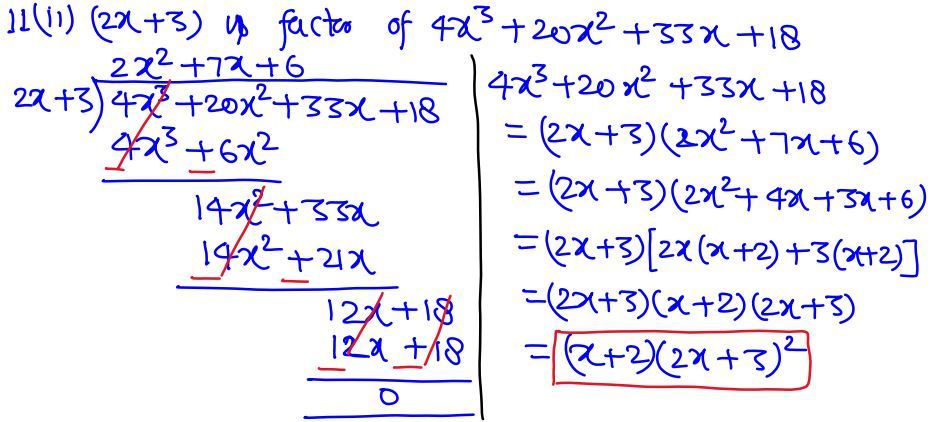 11(ii) (2x+3) is factor of 4x³+20x²+33x+18
2x²+7x+6
2x+3)4x³+20x²+33x+18
4x³+6x²
14x²+33x
14x²+21x
12x+18
12x+18
0
4x³+20x²+33x+18
=(2x+3)(2x²+7x+6)
=(2x+3)(2x²+4x+3x+6)
=(2x+3)[2x(x+2)+3(x+2)]
=(2x+3)(x+2)(2x+3)
=(x+2)(2x+3)²